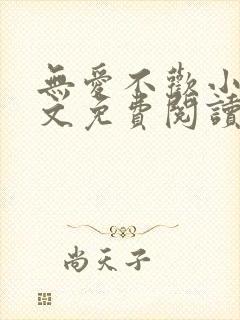 無愛不歡小
文免費閱讀
尚天子